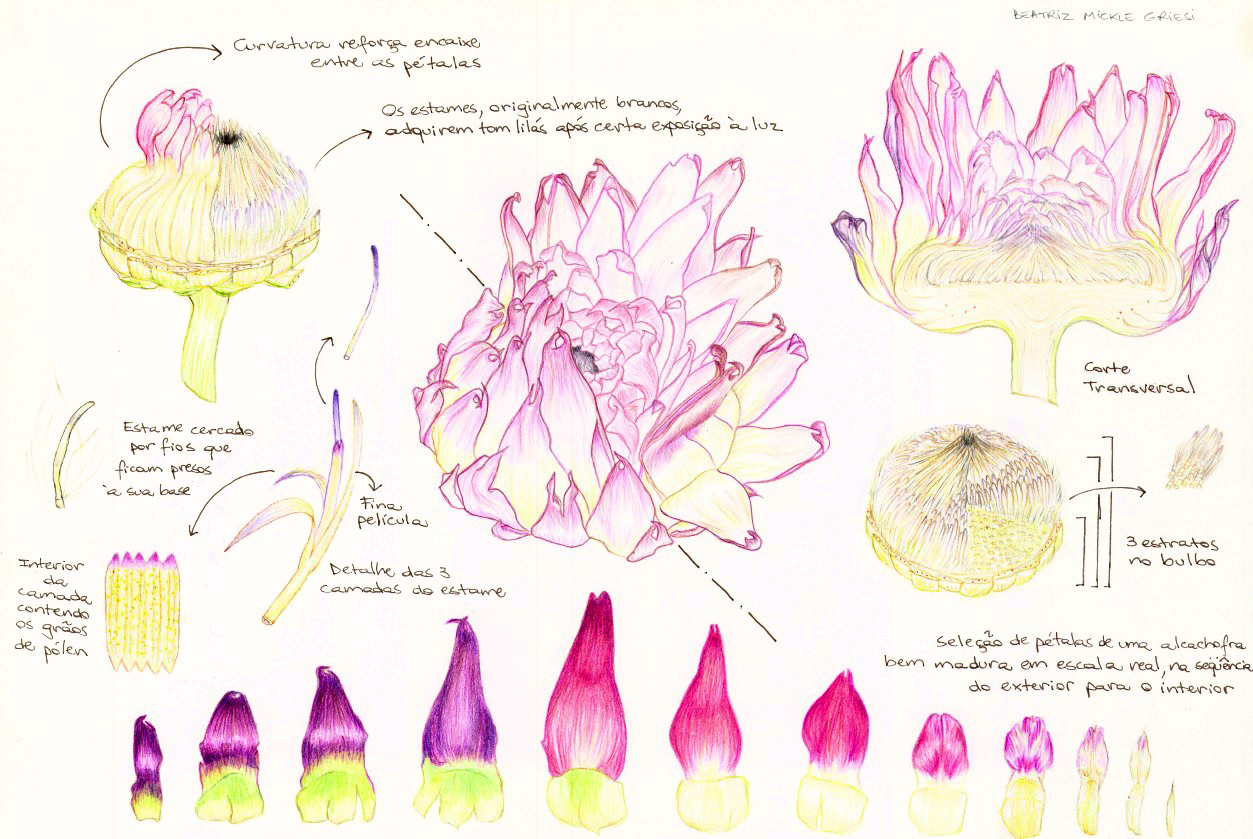 BEATRIZ MICKLE GRIESI
Curvatura reforça encaixe
entre as pétalas
Os estames, originalmente brancos,
adquirem tom lilás após certa exposição à luz
Corte
Transversal
Estame cercado
por fios que
ficam presos
à sua base
Fina
película
3 estratos
no bulbo
Interior
da
camada
contendo
os grãos
de pólen
Detalhe das 3
camadas do estame
Seleção de pétalas de uma alcachofra
bem madura em escala real, na seqüência
do exterior para o interior